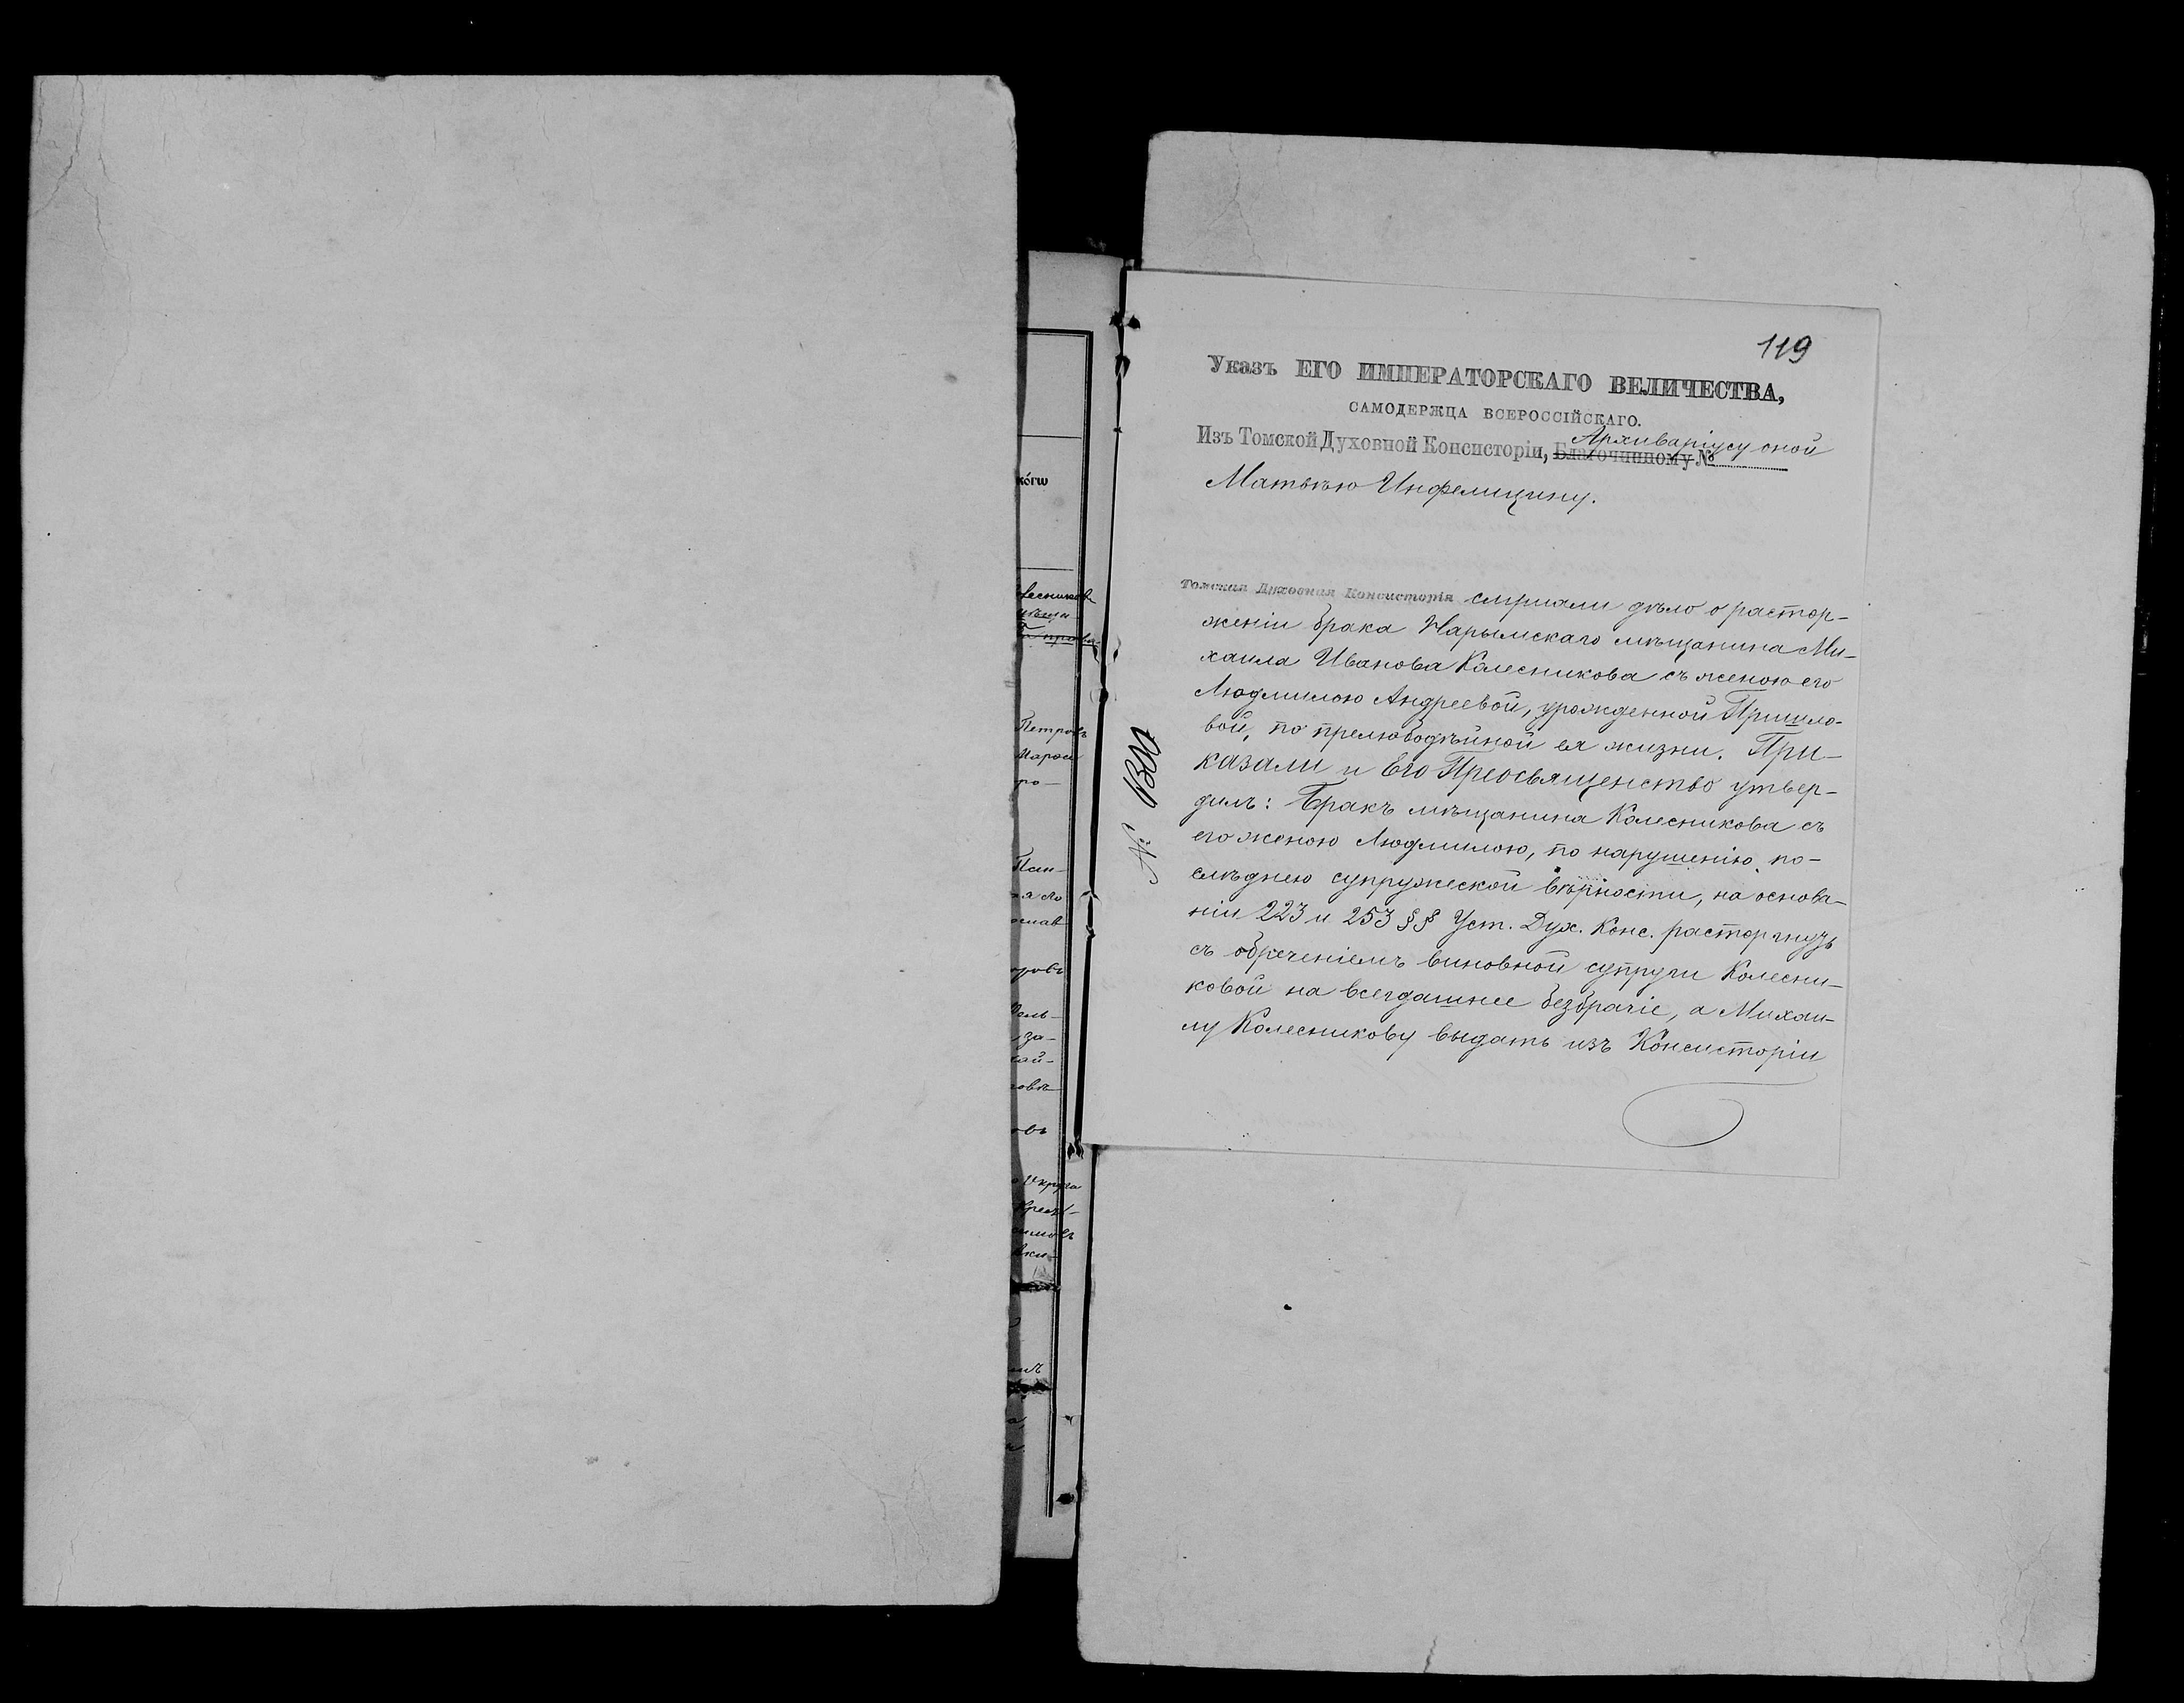 кóгѡ
Петровъ
ро—
овъ
119
Указъ ЕГО ИМПЕРАТОРСКАГО ВЕЛИЧЕСТВА,
САМОДЕРЖЦА ВСЕРОССІЙСКАГО.
Архиваріусу оной
Изъ Томской Духовной Консисторіи, Благочинному №
Матвѣю Инфелицину.
Томская Духовная Консисторія слушали дѣло о растор-
женіи брака Нарымскаго мѣщанина Ми-
хаила Иванова Колесникова съ женою его
Людмилою Андреевой, урожденной Пришло-
вой, по прелюбодѣйной ея жизни. При-
казали и Его Преосвященство утвер-
дилъ: Бракъ мѣщанина Колесникова съ
его женою Людмилою, по нарушенію по-
слѣднею супружеской вѣрности, на основа-
ніи 223 и 253 §§ Уст. Дух. Конс. расторгнуть
съ обреченіемъ виновной супруги Колесни-
ковой на всегдашнее безбрачіе, а Михаи-
лу Колесникову выдать изъ Консисторіи
№ 1300